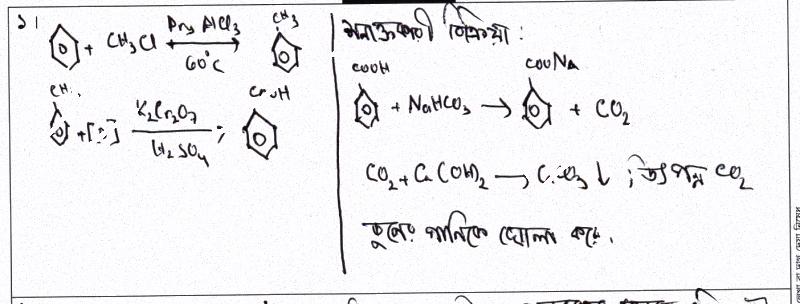 ১।
+ CH3Cl Dry AlCl3 60°c CH3
CH3 +[O] K2Cr2O7 H2SO4 ; COOH
সনাক্তকারী বিক্রিয়া :
COOH + NaHCO3 → COONa + CO2
CO2 + Ca(OH)2 → CaCO3 ↓ ; উৎপন্ন CO2
চুনের পানিকে ঘোলা করে.